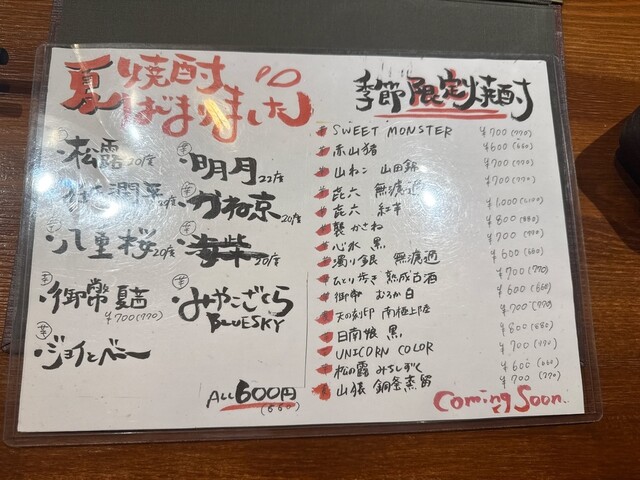 夏焼酎
はじまりました
芋 松露 20度
芋 潤平 20度
芋 八重桜 20度
芋 御常夏 ¥700(770)
芋 ジョイとベー
芋 明月 22度
芋 ガね京 20度
芋 海柴 20度
芋 みやこざくら
BLUESKY
ALL600円
(660)
季節限定焼酎
SWEET MONSTER ¥700(770)
赤山猪 ¥600(660)
山ねこ 山田錦 ¥700(770)
㐂六 無濾過 ¥700(770)
㐂六 紅芋 ¥1,000(1,100)
襲 かさね ¥800(880)
心水 黒 ¥700(770)
濁り銀 無濾過 ¥600(660)
ひとり歩き 熟成古酒 ¥700(770)
御幣 むろか白 ¥600(660)
天の刻印 南極上陸 ¥700(770)
日南娘 黒 ¥800(880)
UNICORN COLOR ¥700(770)
松の露 みちしずく ¥600(660)
山猿 銅釜蒸留 ¥700(770)
Coming Soon.